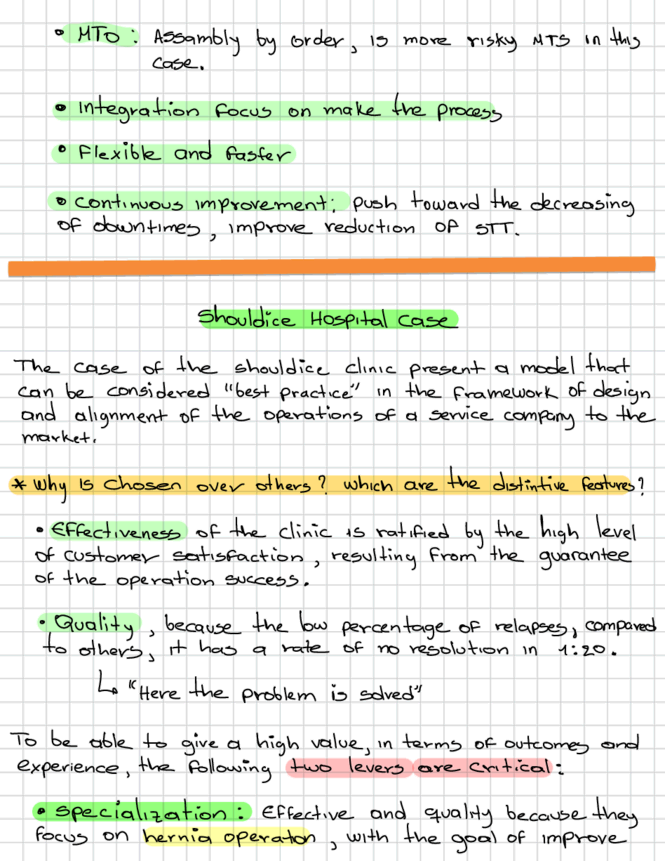 • MTO: Assambly by order, is more risky MTS in this
case.
• Integration focus on make the process
• Flexible and faster
• continuous improvement: push toward the decreasing
of downtimes, improve reduction of STT.
Shouldice Hospital Case
The case of the shouldice clinic present a model that
can be considered "best practice" in the framework of design
and alignment of the operations of a service company to the
market.
* Why is chosen over others? which are the distintive features?
• Effectiveness of the clinic is ratified by the high level
of customer satisfaction, resulting from the guarantee
of the operation success.
• Quality, because the low percentage of relapses, compared
to others, it has a rate of no resolution in 1:20.
↳ "Here the problem is solved"
To be able to give a high value, in terms of outcomes and
experience, the following two levers are critical:
• specialization: Effective and quality because they
focus on hernia operaton, with the goal of improve